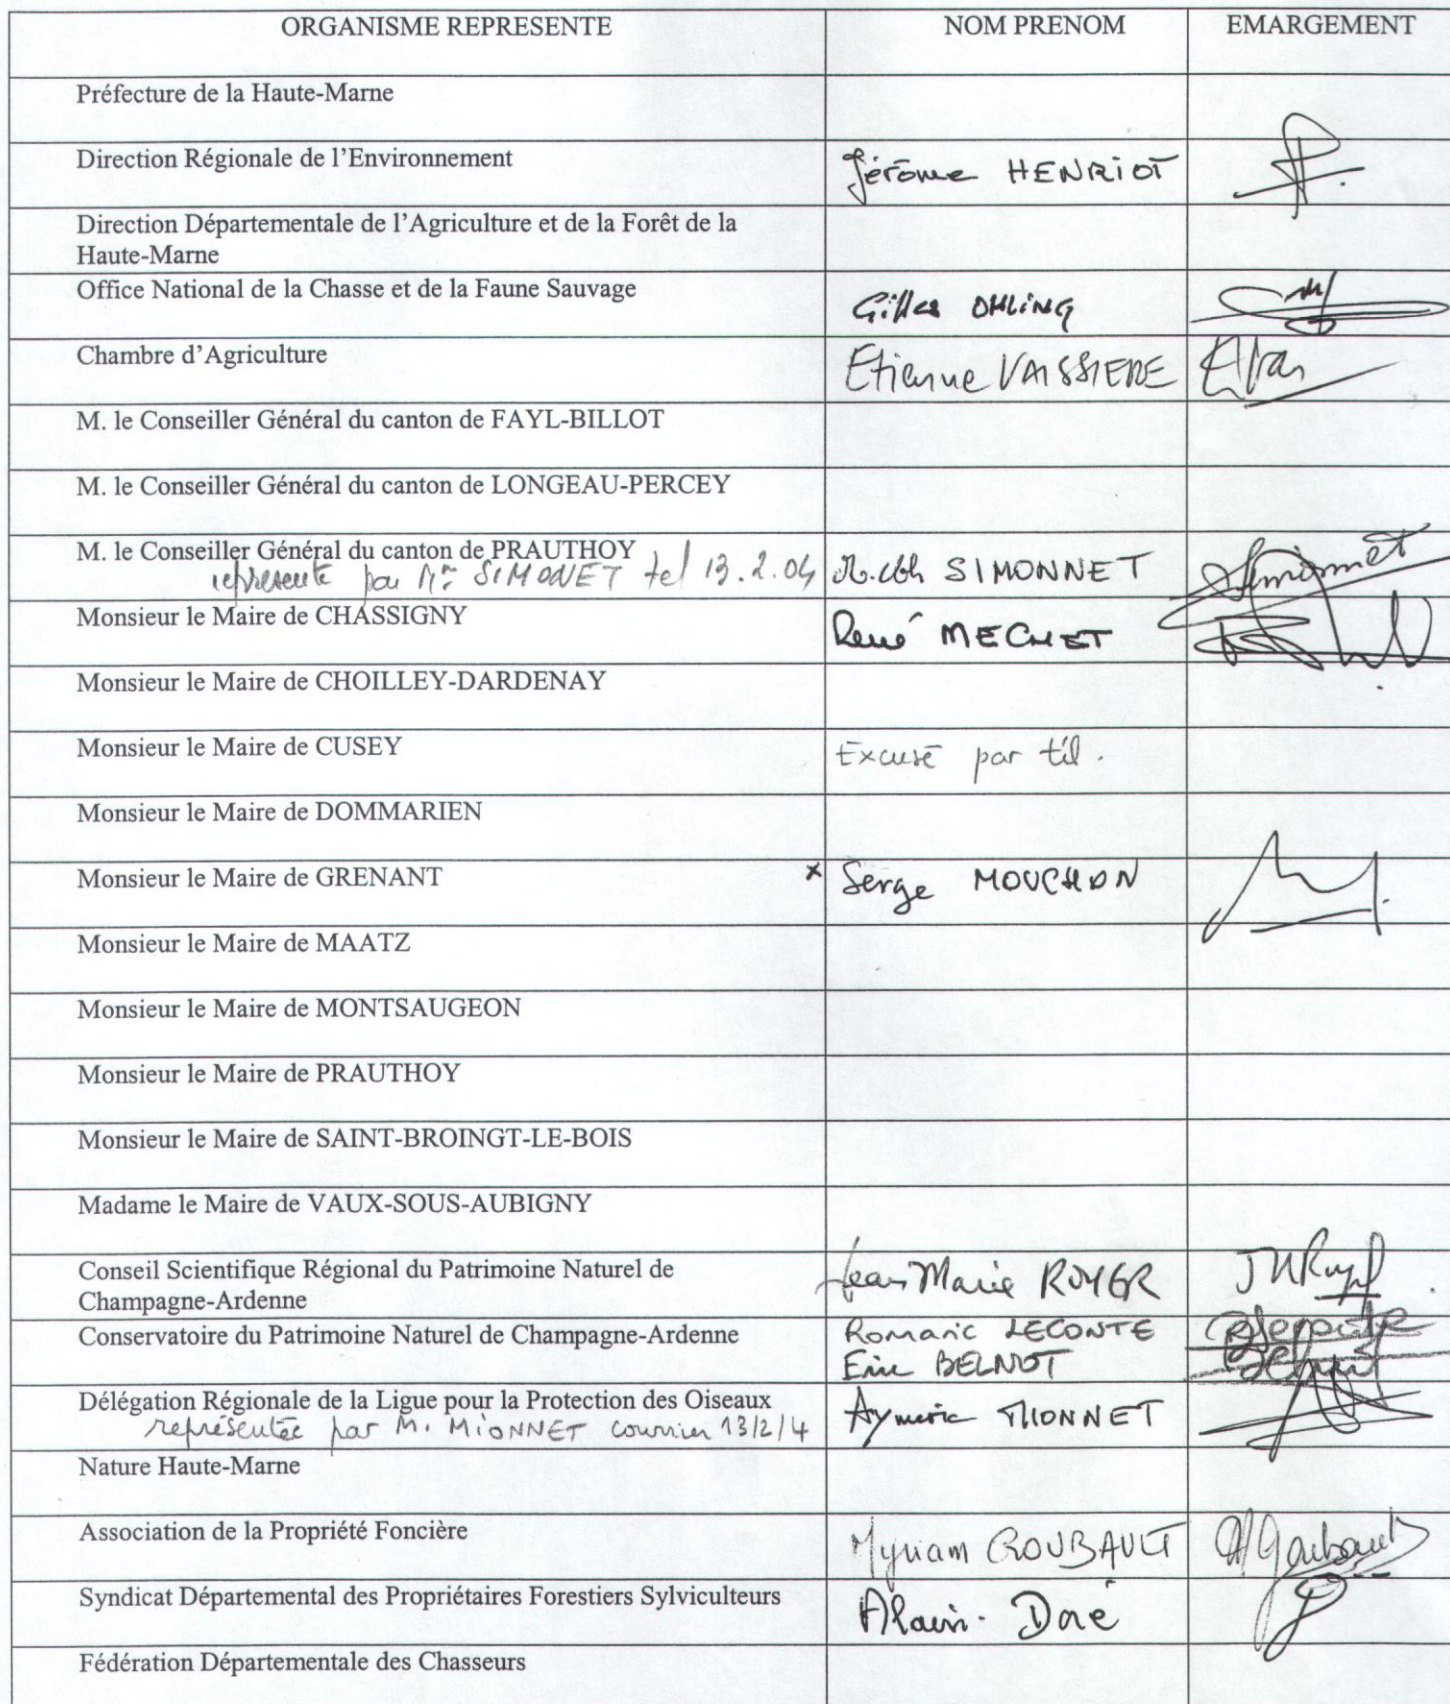 ORGANISME REPRESENTE NOM PRENOM EMARGEMENT
Préfecture de la Haute-Marne
Direction Régionale de l'Environnement Jérôme HENRIOT
Direction Départementale de l'Agriculture et de la Forêt de la
Haute-Marne
Office National de la Chasse et de la Faune Sauvage Gilles OHLING
Chambre d'Agriculture Etienne VAISSIERE
M. le Conseiller Général du canton de FAYL-BILLOT
M. le Conseiller Général du canton de LONGEAU-PERCEY
M. le Conseiller Général du canton de PRAUTHOY
représenté par Mme SIMONET tel 13.2.04 SIMONNET Simonnet
Monsieur le Maire de CHASSIGNY René MECHET
Monsieur le Maire de CHOILLEY-DARDENAY
Monsieur le Maire de CUSEY Excusé par tél.
Monsieur le Maire de DOMMARIEN
Monsieur le Maire de GRENANT x Serge MOUCHON
Monsieur le Maire de MAATZ
Monsieur le Maire de MONTSAUGEON
Monsieur le Maire de PRAUTHOY
Monsieur le Maire de SAINT-BROINGT-LE-BOIS
Madame le Maire de VAUX-SOUS-AUBIGNY
Conseil Scientifique Régional du Patrimoine Naturel de
Champagne-Ardenne Jean Marie ROYER
Conservatoire du Patrimoine Naturel de Champagne-Ardenne Romaric LECONTE
Eric BELNOT
Délégation Régionale de la Ligue pour la Protection des Oiseaux
représentée par M. MIONNET courrier 13/2/4 Aymeric MIONNET
Nature Haute-Marne
Association de la Propriété Foncière Myriam
Syndicat Départemental des Propriétaires Forestiers Sylviculteurs Alain Doré
Fédération Départementale des Chasseurs